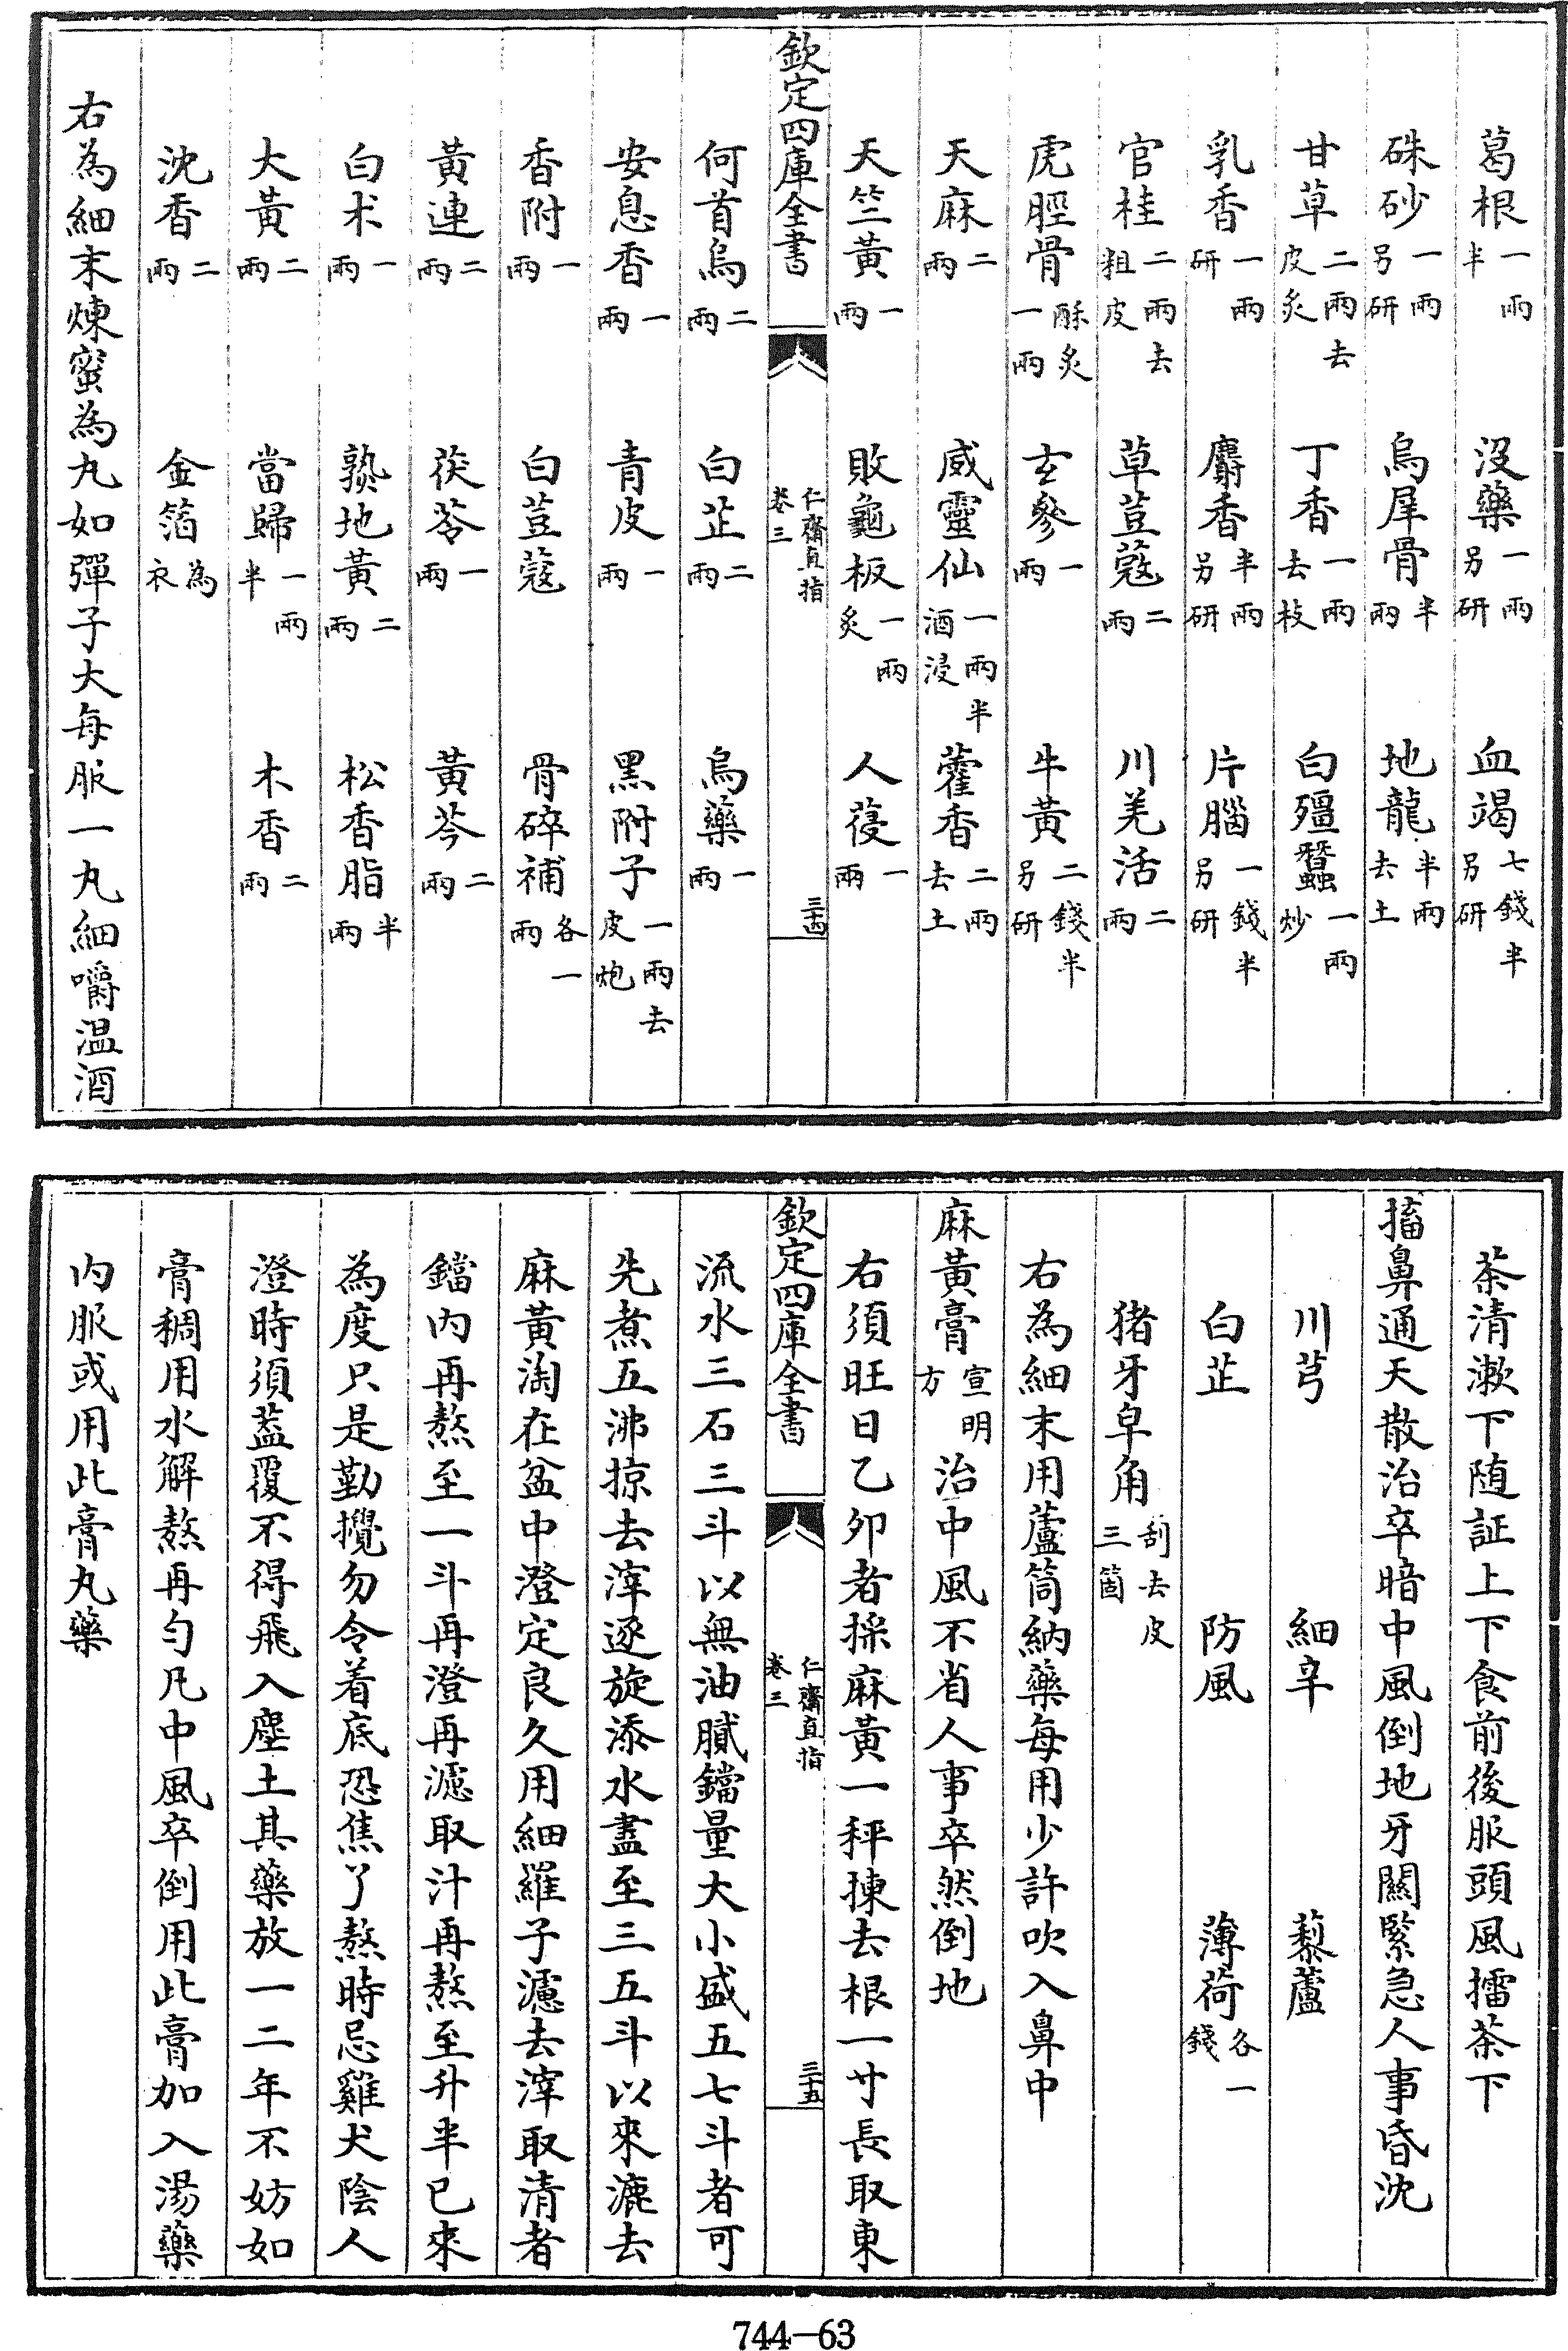 葛根一兩半 没藥一兩另研 血竭七錢半另研
硃砂一兩另研 烏犀骨半兩 地龍半兩去土
甘草二兩去皮炙 丁香一兩去枝 白殭蠶一兩炒
乳香一兩研 麝香半兩另研 片腦一錢半另研
官桂二兩去粗皮 草荳蔻二兩 川羌活二兩
虎脛骨酥炙一兩 玄參一兩 牛黃二錢半另研
天麻二兩 威靈仙一兩半酒浸 藿香二兩去土
天竺黃一兩 敗龜板一兩炙 人葠一兩
欽定四庫全書 仁齋直指卷三 三十四
何首烏二兩 白芷二兩 烏藥一兩
安息香一兩 青皮一兩 黑附子一兩去皮炮
香附一兩 白荳蔻 骨碎補各一兩
黃連二兩 茯苓一兩 黃芩二兩
白术一兩 熟地黃二兩 松香脂半兩
大黃二兩 當歸一兩半 木香二兩
沈香二兩 金箔為衣
右為細末煉蜜為丸如彈子大每服一丸細嚼温酒
茶清漱下随証上下食前後服頭風擂茶下
搐鼻通天散治卒暗中風倒地牙關緊急人事昏沈
川芎 細辛 藜蘆
白芷 防風 薄荷各一錢
猪牙皁角刮去皮三箇
右為細末用蘆筒納藥每用少許吹入鼻中
麻黃膏宣明方 治中風不省人事卒然倒地
右須旺日乙夘者採麻黃一秤揀去根一寸長取東
欽定四庫全書 仁齋直指卷三 三十五
流水三石三斗以無油膩鐺量大小盛五七斗者可
先煮五沸掠去滓逐旋添水盡至三五斗以來漉去
麻黃淘在盆中澄定良久用細羅子濾去滓取清者
鐺内再熬至一斗再澄再濾取汁再熬至升半已來
為度只是勤攪勿令着底恐焦了熬時忌雞犬陰人
澄時須蓋覆不得飛入塵土其藥放一二年不妨如
膏稠用水解熬再勻凡中風卒倒用此膏加入湯藥
内服或用此膏丸藥
744—63